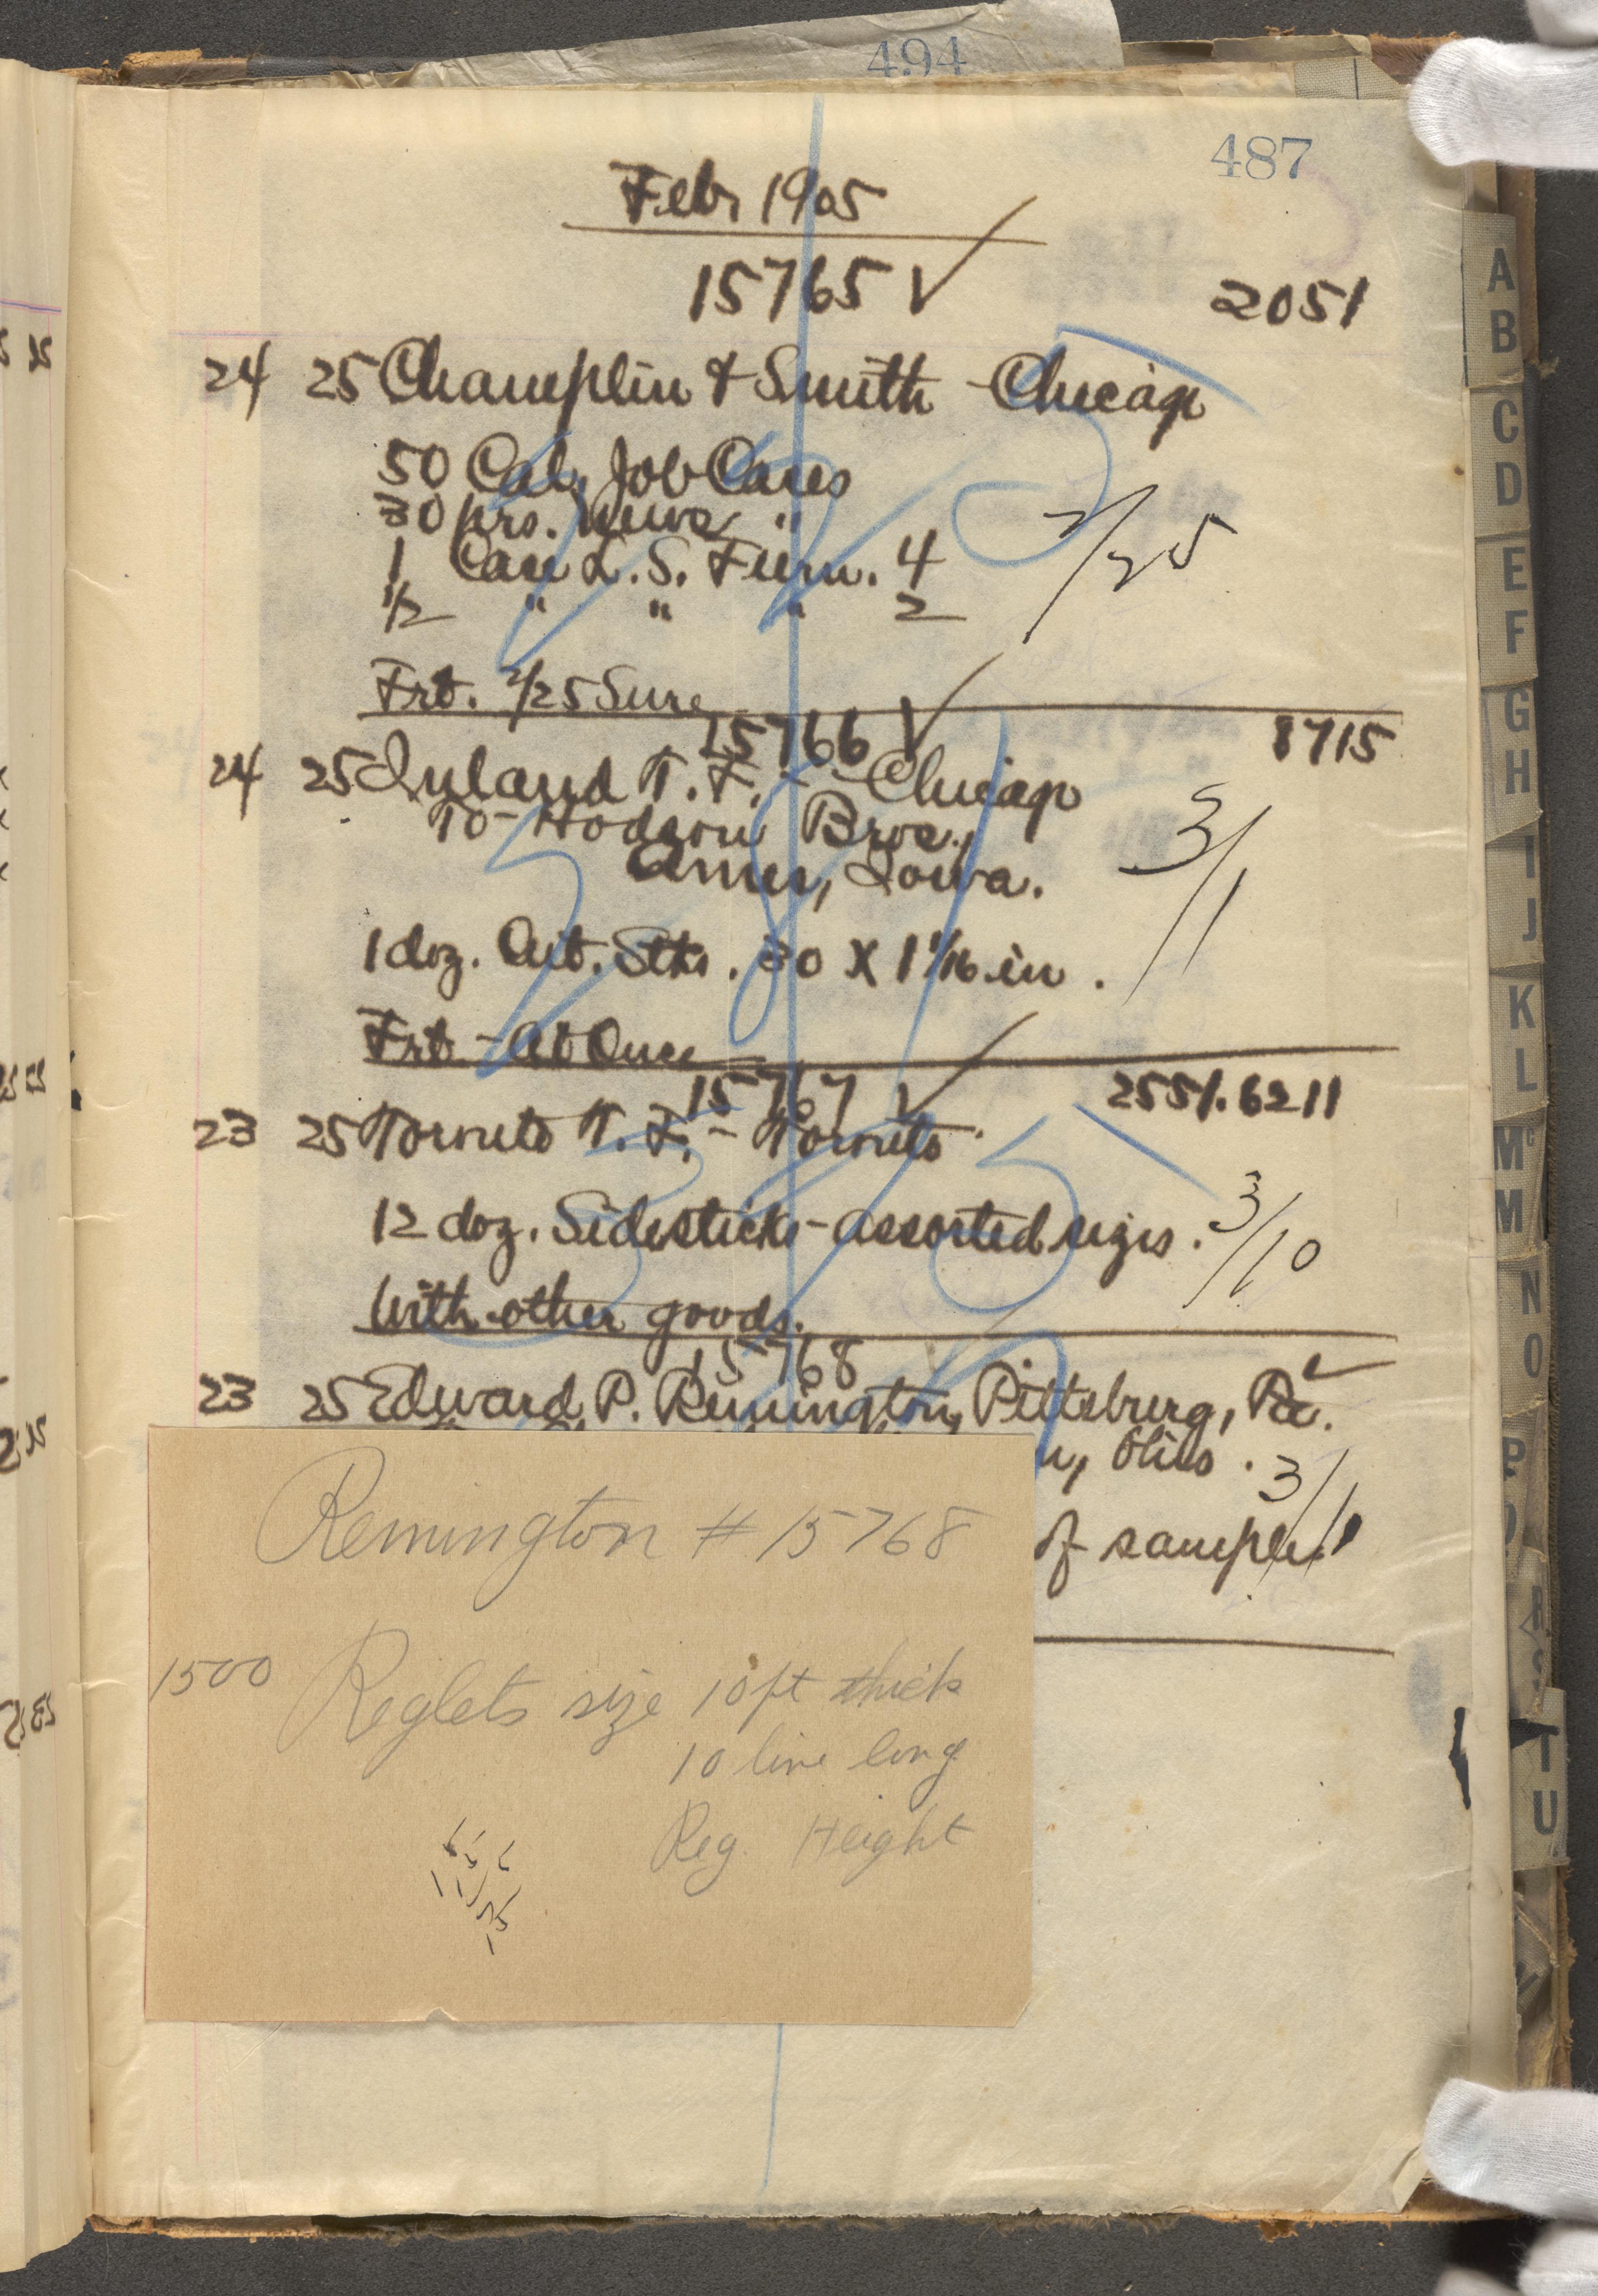 494
487
Febr 1905
15765 ✓
2051
24 25 Champlin & Smith - Chicago
50 Cal. Job Cases
30 prs. News "
1 Case L. S. Furn. 4
1/2 " " " 2
2/25
Frt. 2/25 Sure
15766 ✓
1715
24 25 Inland T. F. - Chicago
To - Hodgson Bros.,
Ames, Iowa.
3/1
1 doz. Stks. 30 X 1 1/16 in.
Frt - At Once
15767 ✓
2551.6211
23 25 Toronto T. F. - Toronto
12 doz. Sidesticks - assorted sizes.
3/10
With other goods.
15768 ✓
23 25 Edward P. Remington, Pittsburg, Pa.
Ohio.
3/1
of sample.
Remington # 15768
1500 Reglets size 10 pt thick
10 line long
Reg. Height
A
B
C
D
E
F
G
H
I
J
K
L
Mc
M
N
O
P
R
T
U